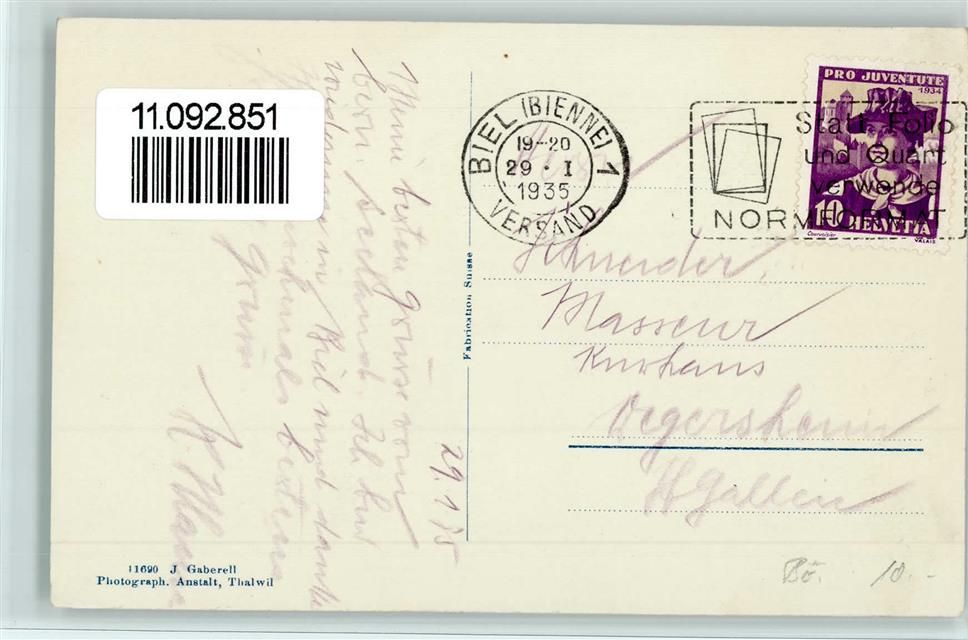 11.092.851
BIEL (BIENNE) 1
19-20
29 · I
1935
VERSAND
Statt Folio
und Quart
verwende
NORMFORMAT
PRO JUVENTUTE
1934
10 HELVETIA
Courvoisier
VALAIS
29.1.35
besten Grüsse vom
Ich bin
in Biel und danke
Grüsse
Fabrication Suisse
Herrn
Schneider
Masseur
Kurhaus
Degersheim
St Gallen
11690 J. Gaberell
Photograph. Anstalt, Thalwil
Bö. 10.-